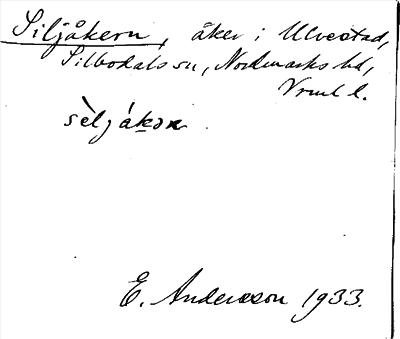 Siljåkern, åker i Ulvestad,
Silbodals sn, Nordmarks hd,
Vrml l.
sèljákɔn
E. Andersson 1933.